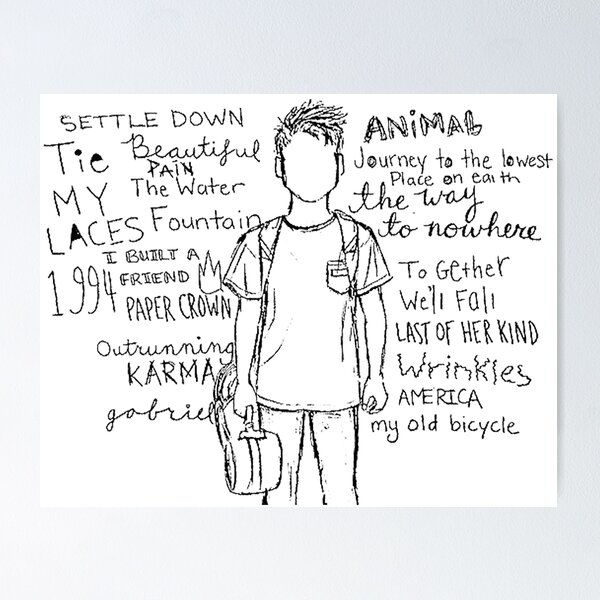 SETTLE DOWN
Tie
MY
LACES
Beautiful
PAIN
The Water
Fountain
I BUILT A
FRIEND
1994
PAPER CROWN
Outrunning
KARMA
gabriel
ANiMAL
Journey to the lowest
Place on earth
the way
to nowhere
To GetHer
We'll Fall
LAST OF HER KIND
Wrinkles
AMERICA
my old bicycle